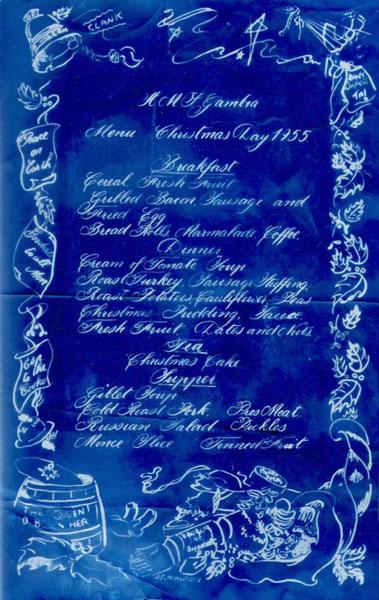 CLANK
H M S Gambia
Menu Christmas Day 1955
Peace on Earth
Breakfast
Cereal Fresh Fruit
Grilled Bacon Sausage and
Fried Egg
Bread Rolls Marmalade Coffee
Dinner
Cream of Tomato Soup
Roast Turkey Sausage Stuffing
Roast Potatoes Cauliflower Peas
Christmas Pudding Sauce
Fresh Fruit Dates and Nuts
Tea
Christmas Cake
Supper
Giblet Soup
Cold Roast Pork Pres Meat
Russian Salad Pickles
Mince Slice Tinned Fruit